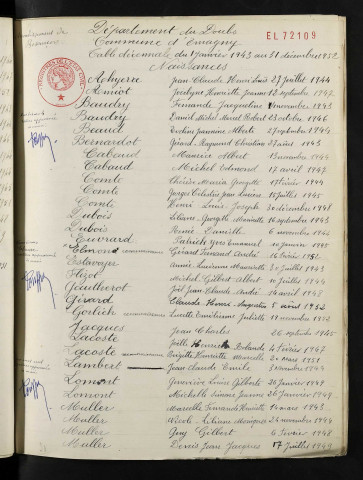 EL 72109
Département du Doubs
Commune d'Emagny
Table décennale du 1er janvier 1943 au 31 décembre 1952
Naissances
Jean Claude Henri Louis 27 juillet 1944
Amiot Jocelyne Henriette Jeanne 12 septembre 1947
Baudry Fernande Jacqueline novembre 1943
Baudry Daniel Michel Marcel Robert 23 octobre 1946
Beaud Evelyne Jeannine Alberte 27 septembre 1944
Bernardot Gérard Raymond Christian 27 août 1943
Cabaud Maurice Albert novembre 1943
Cabaud Michel Edmond 17 avril 1947
Comte Marie Georgette février 1944
Comte Georges Célestin juillet 1945
Comte René Louis Joseph 30 décembre 1948
Dubois Liliane Georgette Mariette 16 septembre 1943
Dubois Renée Danielle 6 novembre 1944
Euvrard Patrick Yves Emmanuel 10 janvier 1945
Elmond Gérard Fernand André 16 février 1951
Estavoyer Annie Lucienne Henriette 30 juillet 1943
Michel Gilbert Albert 10 juillet 1944
Gautherot Joël Jean Claude André 14 avril 1948
Girard Claude Augustin 6 avril 1952
Gorlich Lucette Emilienne Juliette 19 novembre 1952
Jacques Jean Charles 26 septembre 1945
Lacoste Joëlle Henriette Rolande 4 février 1947
Lacoste Brigitte Henriette Marcelle 20 mars 1951
Lambert Jean Claude Emile novembre
Lomont Geneviève Louise Gilberte 26 janvier 1949
Lomont Michelle Simone Jeanne 26 janvier 1949
Muller Marcelle Fernande Henriette 14 mars 1943
Muller Nicole Liliane Monique 24 novembre 1944
Muller Guy Gilbert 6 février 1948
Muller Denis Jean Jacques 17 juillet